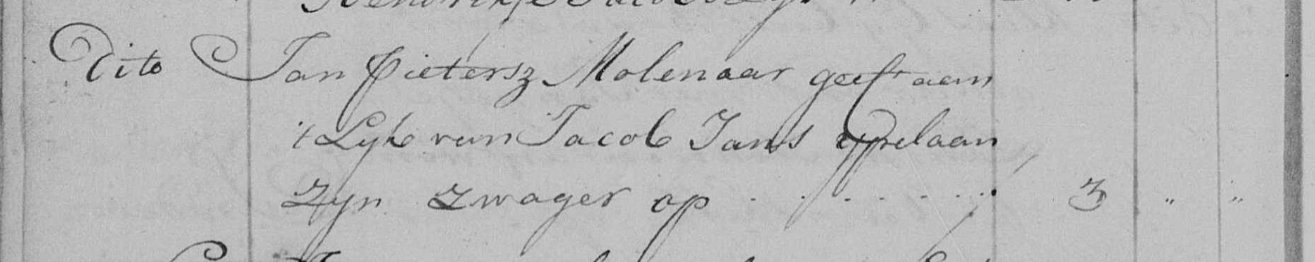 Dito Jan Pietersz Molenaar geeft aan
't Lyk van Jacob Jans Ypelaan,
Zyn Zwager op . . . . . . 3 " "